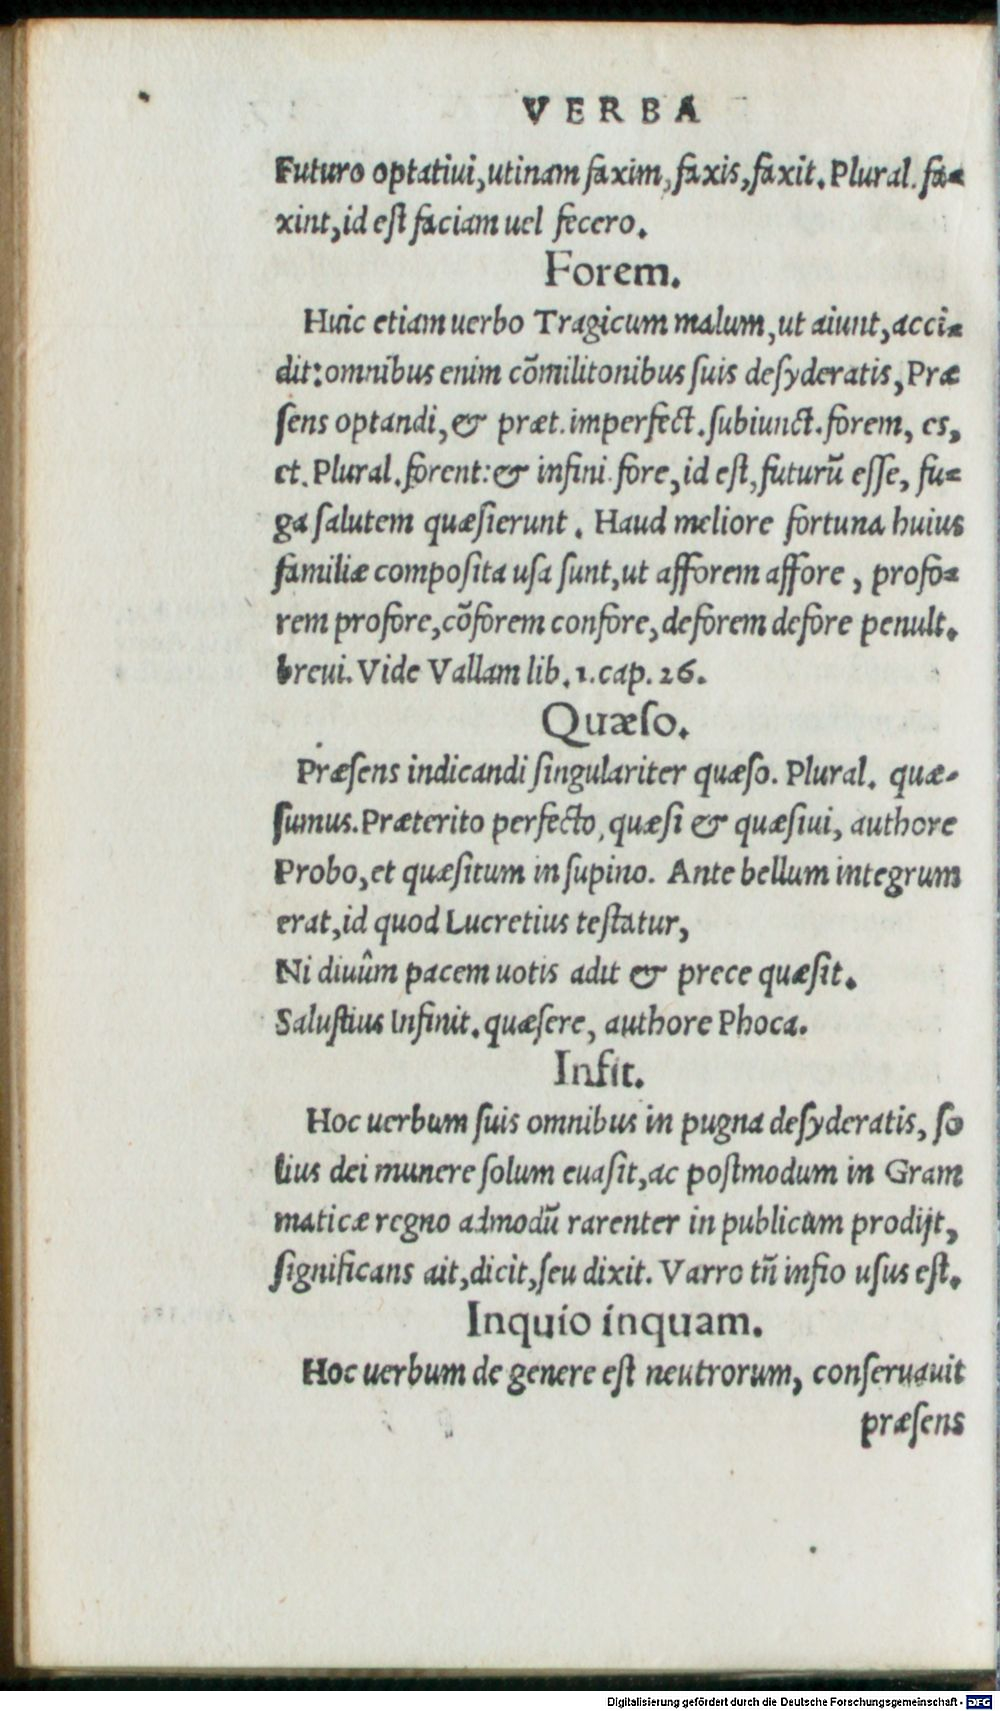 VERBA
Futuro optatiui, utinam faxim, faxis, faxit. Plural. fa-
xint, id est faciam uel fecero.
Forem.
Huic etiam uerbo Tragicum malum, ut aiunt, acci-
dit: omnibus enim cõmilitonibus suis desyderatis, Præ
sens optandi, & præt. imperfect. subiunct. forem, es,
et. Plural. forent: & infini. fore, id est, futurũ esse, fu-
ga salutem quæsierunt. Haud meliore fortuna huius
familiæ composita usa sunt, ut afforem affore, profo-
rem profore, cõforem confore, deforem defore penult.
breui. Vide Vallam lib. 1. cap. 26.
Quæso.
Præsens indicandi singulariter quæso. Plural. quæ-
sumus. Præterito perfecto, quæsi & quæsiui, authore
Probo, et quæsitum in supino. Ante bellum integrum
erat, id quod Lucretius testatur,
Ni diuûm pacem uotis adit & prece quæsit.
Salustius Infinit. quæsere, authore Phoca.
Infit.
Hoc uerbum suis omnibus in pugna desyderatis, so
lius dei munere solum euasit, ac postmodum in Gram
maticæ regno admodũ rarenter in publicum prodijt,
significans ait, dicit, seu dixit. Varro tñ infio usus est.
Inquio inquam.
Hoc uerbum de genere est neutrorum, conseruauit
præsens
Digitalisierung gefördert durch die Deutsche Forschungsgemeinschaft - DFG